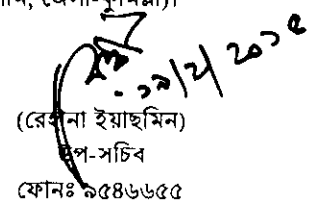 জেলা-কুমিল্লা)।
১৯/২/২০১৫
(রেহানা ইয়াছমিন)
উপ-সচিব
ফোনঃ ৯৫৪৬৬৫৫